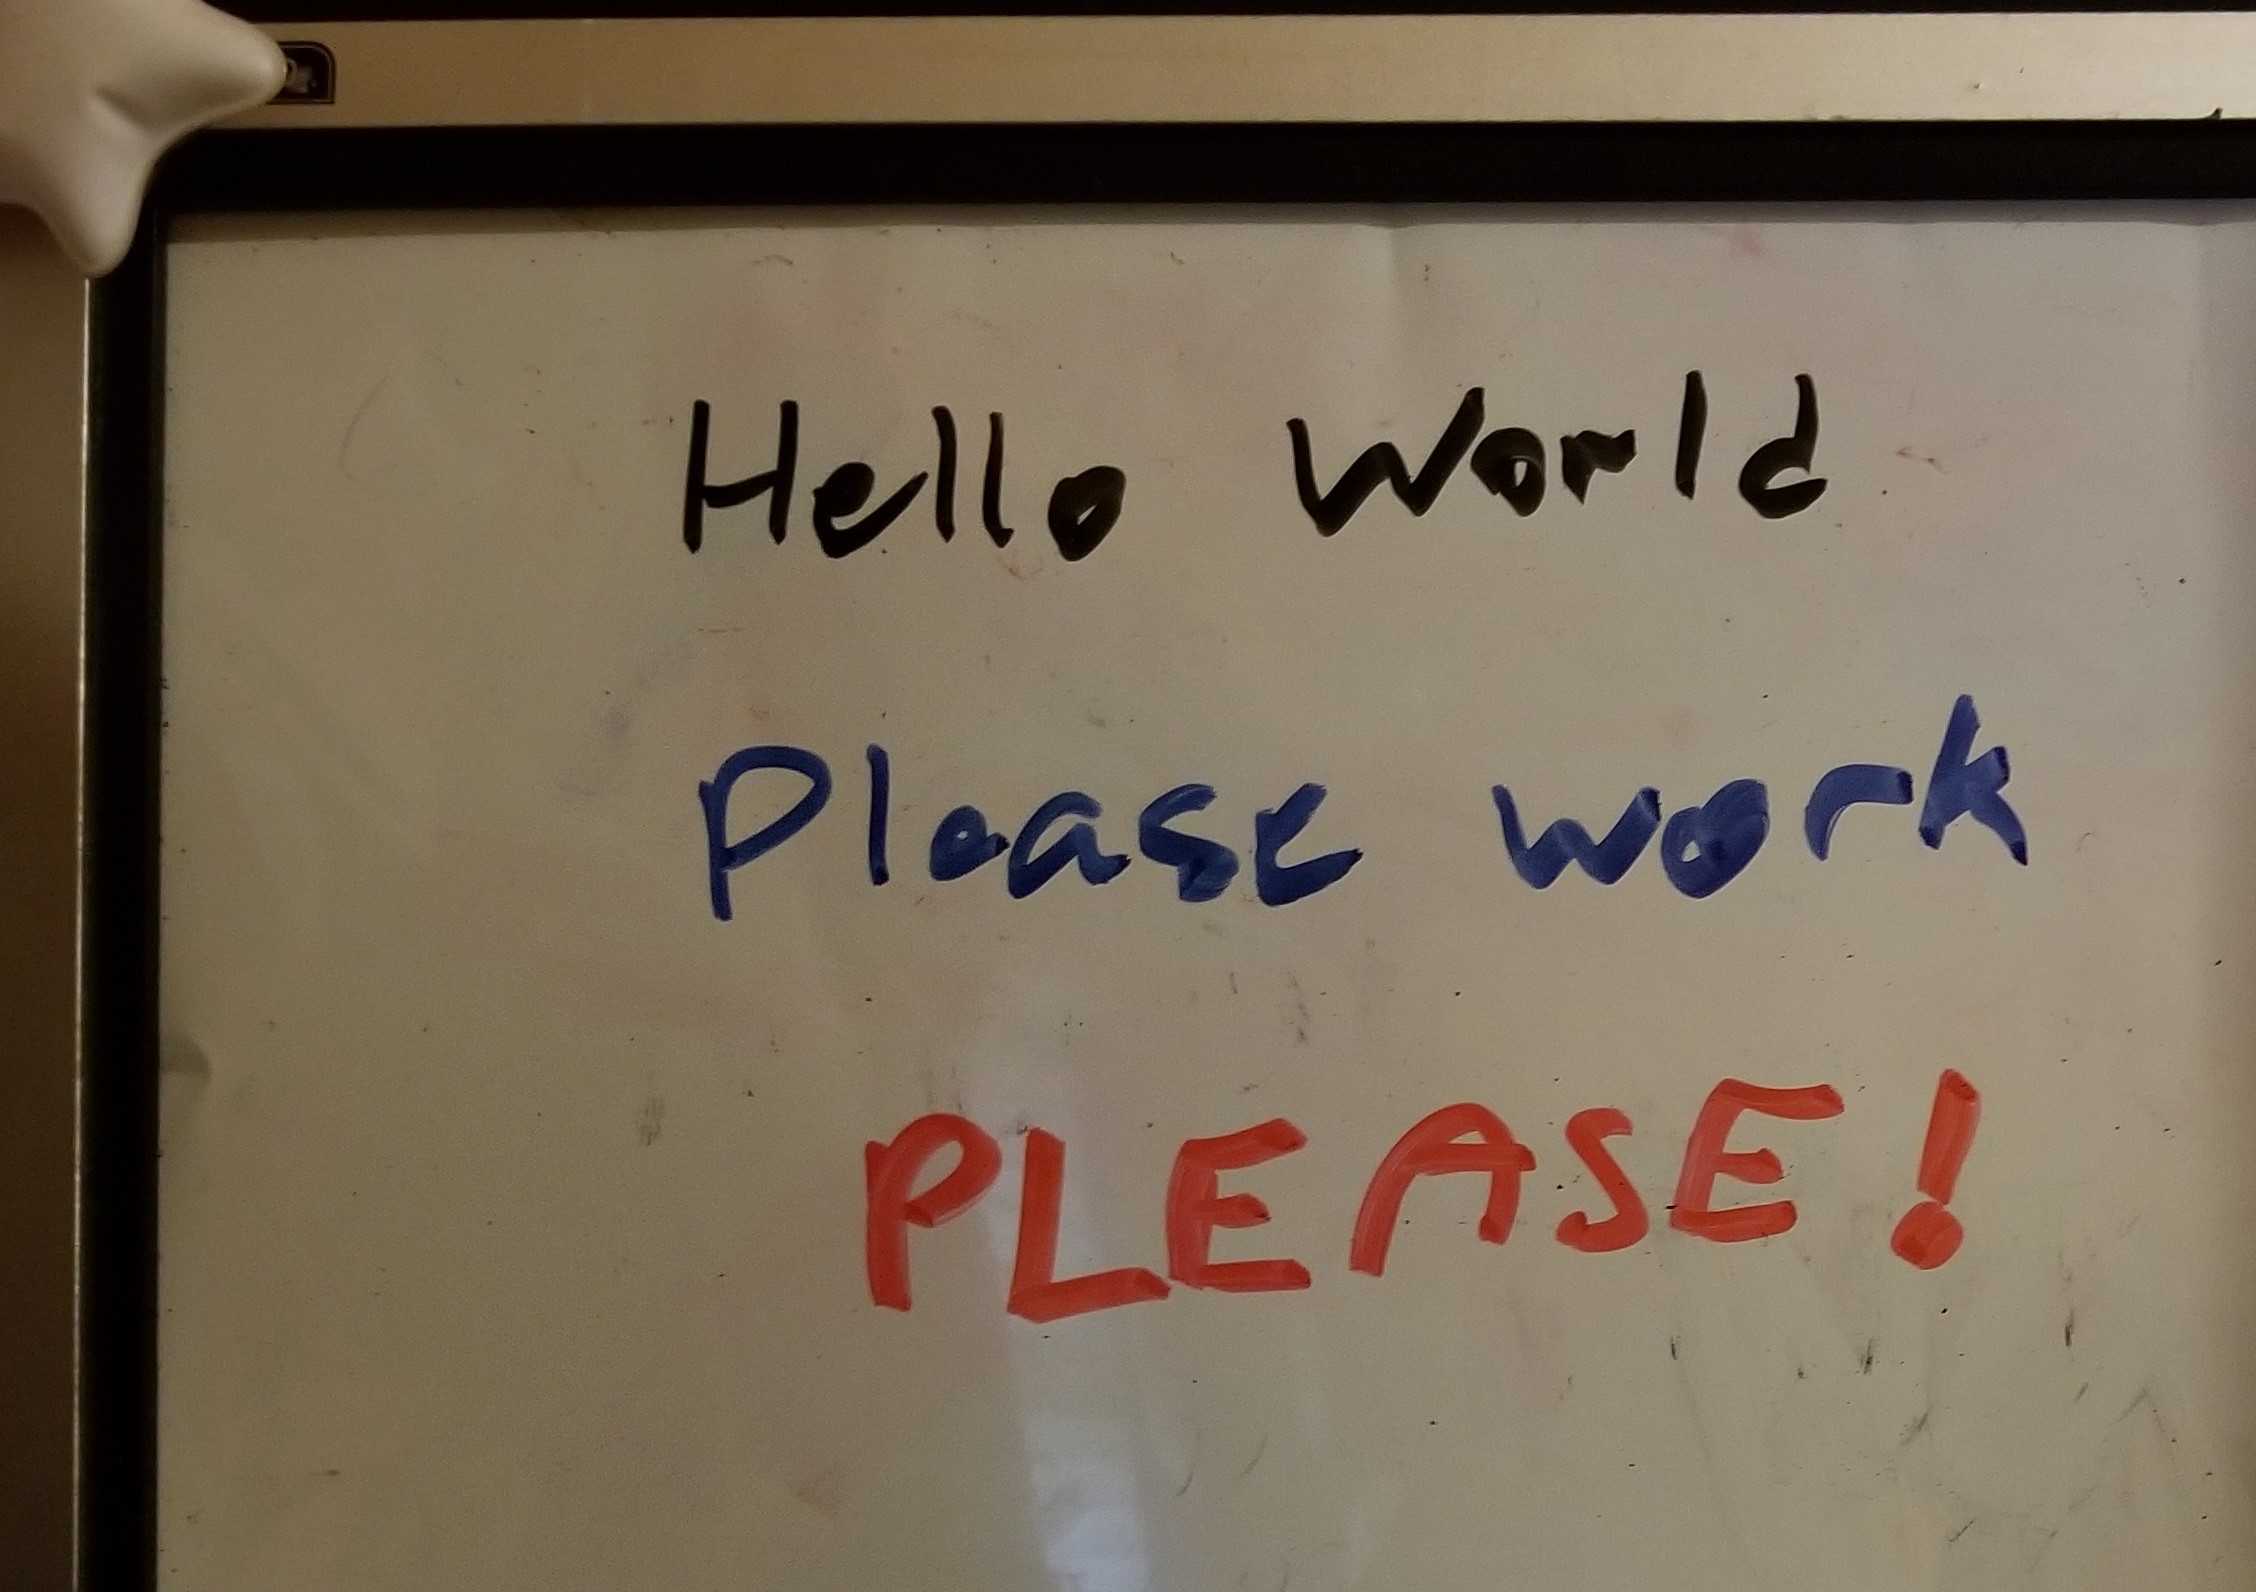 Hello World
Please work
PLEASE!